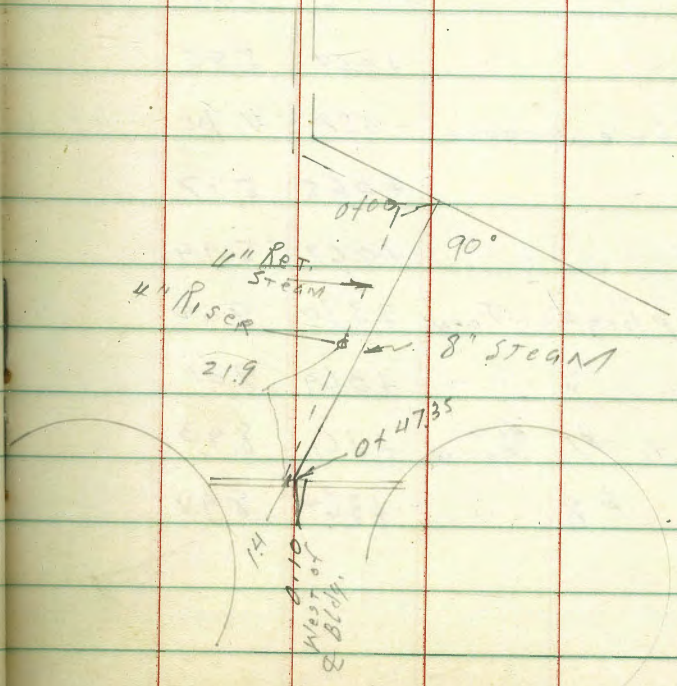 0+00
90°
4" Ret.
Steam
4" Riser
8" Steam
21.9
0+47.35
1.4
0.10
West of
℄ Bldg.